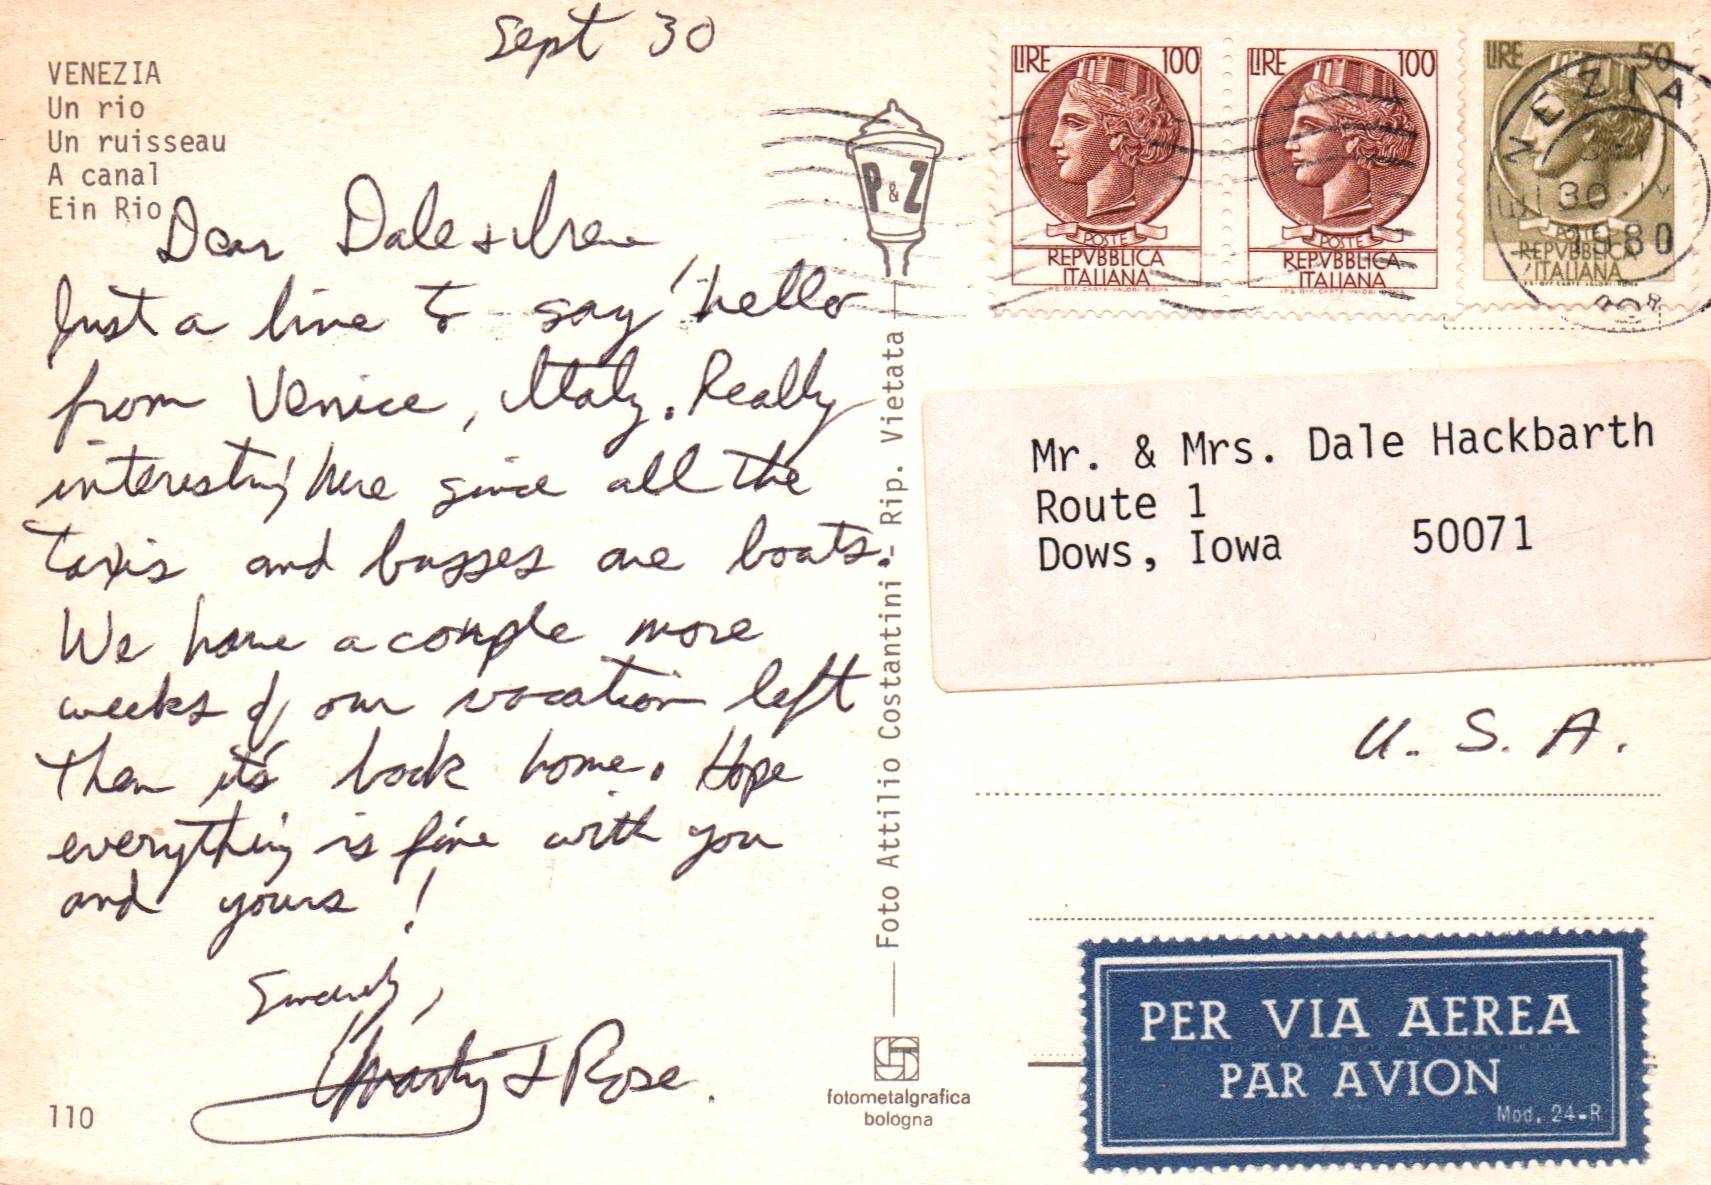 Sept 30
VENEZIA
Un rio
Un ruisseau
A canal
Ein Rio
Dear Dale & Irene,
Just a line to say "hello
from Venice, Italy. Really
interesting here since all the
taxis and busses are boats.
We have a couple more
weeks of our vacation left
then it's back home. Hope
everything is fine with you
and yours!
Sincerely,
Marty & Rose.
110
P & Z
Foto Attilio Costantini - Rip. Vietata
fotometalgrafica
bologna
LIRE 100
POSTE
REPVBBLICA
ITALIANA
LIRE 100
POSTE
REPVBBLICA
ITALIANA
LIRE 50
POSTE
REPVBBLICA
ITALIANA
VENEZIA
30
1980
Mr. & Mrs. Dale Hackbarth
Route 1
Dows, Iowa 50071
U. S. A.
PER VIA AEREA
PAR AVION
Mod. 24-R